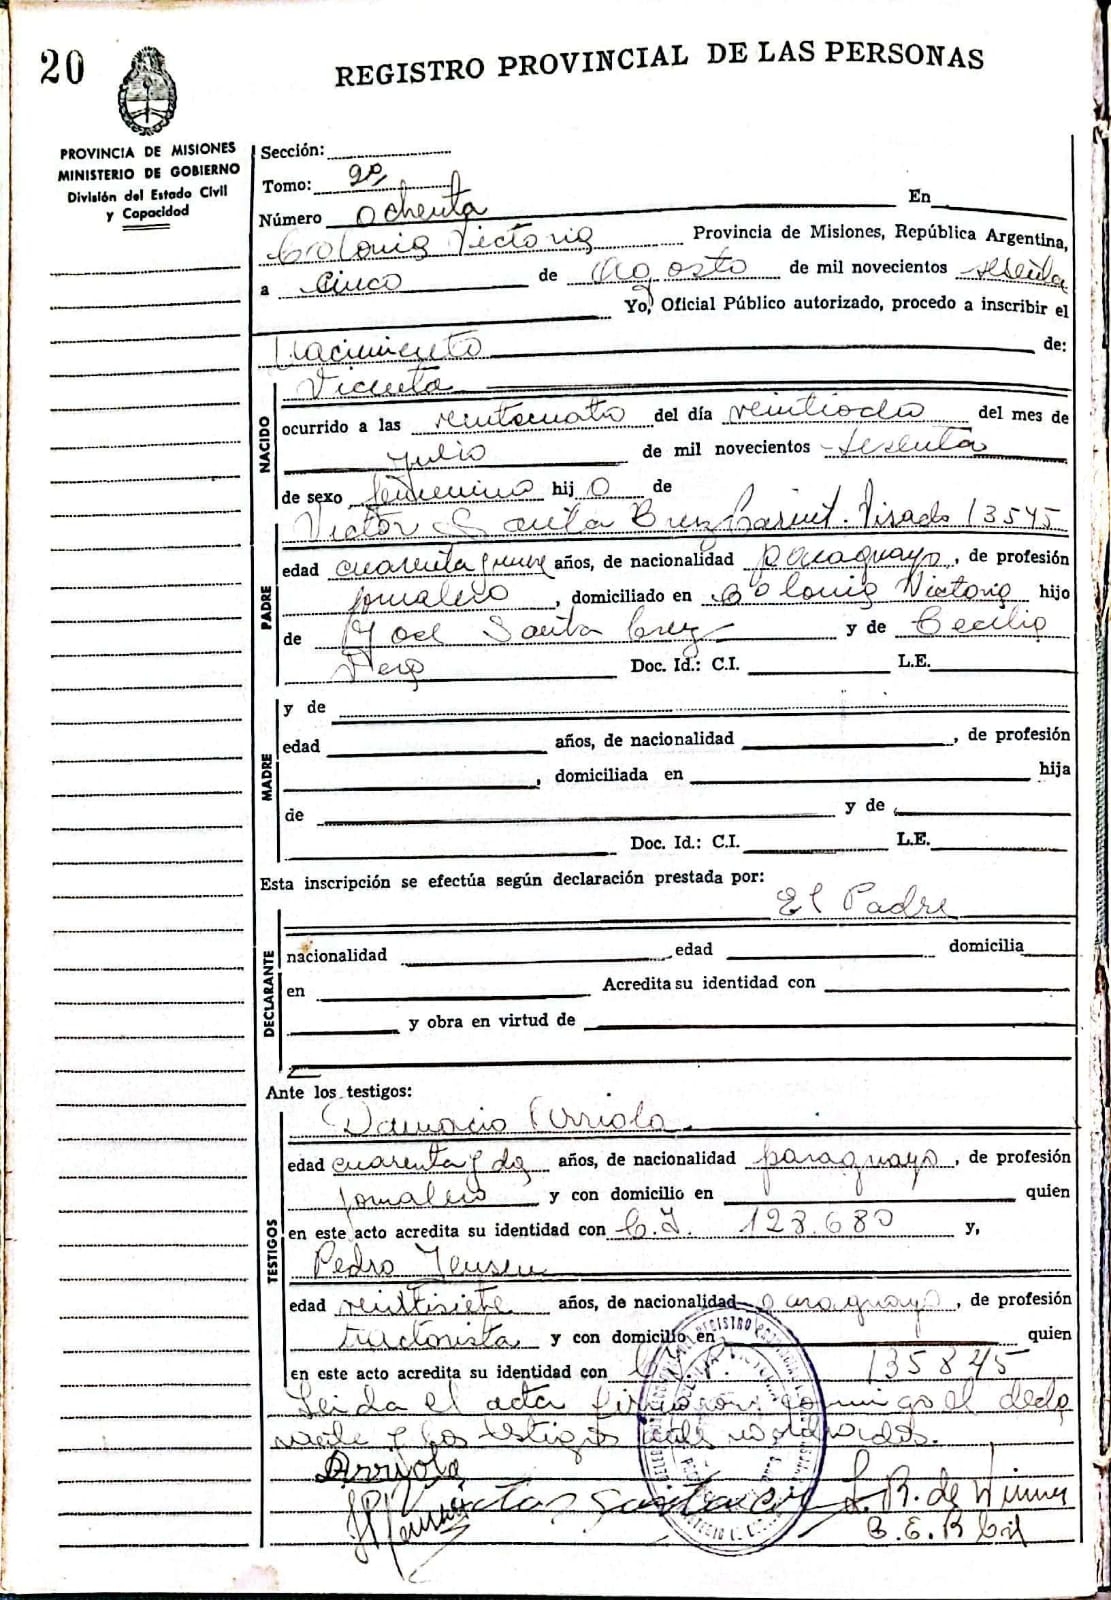 20
REGISTRO PROVINCIAL DE LAS PERSONAS
PROVINCIA DE MISIONES
MINISTERIO DE GOBIERNO
División del Estado Civil
y Capacidad
Sección:
Tomo: 2º,
Número ochenta En
Colonia Victoria Provincia de Misiones, República Argentina,
a cinco de Agosto de mil novecientos sesenta
Yo, Oficial Público autorizado, procedo a inscribir el
Nacimiento de:
NACIDO
Vicenta
ocurrido a las veinticuatro del día veintiocho del mes de
Julio de mil novecientos sesenta
de sexo femenino hij o de
PADRE
Victor Santa Cruz Visado 13545
edad cuarenta y nueve años, de nacionalidad paraguayo, de profesión
jornalero, domiciliado en Colonia Victoria hijo
de Santa Cruz y de Cecilia
Vera Doc. Id.: C.I. L.E.
MADRE
y de
edad años, de nacionalidad , de profesión
, domiciliada en hija
de y de
Doc. Id.: C.I. L.E.
Esta inscripción se efectúa según declaración prestada por:
El Padre
DECLARANTE
nacionalidad , edad domicilia
en Acredita su identidad con
y obra en virtud de
Ante los testigos:
TESTIGOS
Damacio Arriola.
edad cuarenta y dos años, de nacionalidad paraguayo, de profesión
jornalero y con domicilio en quien
en este acto acredita su identidad con C.I. 128.680 y,
Pedro Jensen
edad veintisiete años, de nacionalidad paraguayo, de profesión
tractorista y con domicilio en quien
en este acto acredita su identidad con 135845
Leida el acta firmaron conmigo el decla
rante y los testigos nombrados.
Arriola
Victor Santacruz L. R. de Winner